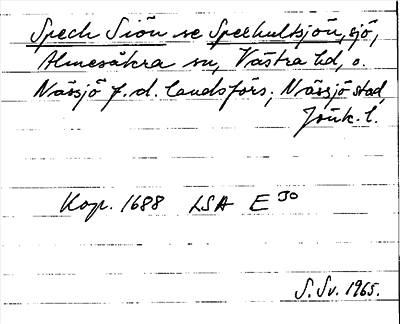 Spech Siön se Sperhultsjön, sjö,
Almesåkra sn, Västra hd, o.
Nässjö f.d. landsförs.; Nässjö stad,
Jönk. l.
Kop. 1688 LSA E 30
S. Sv. 1965.